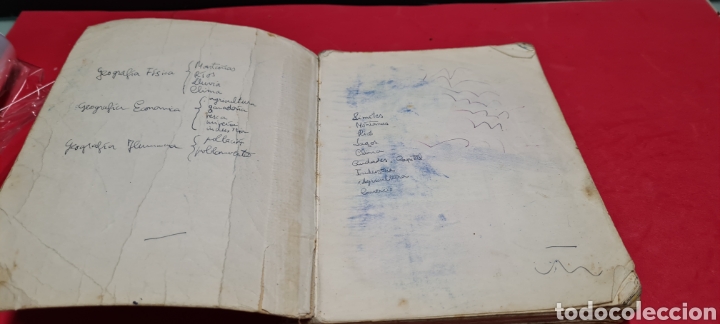 Geografia Física { Montañas
Rios
Lluvia
Clima
Geografia Economica { agricultura
ganaderia
Pesca
industria
Geografia Humana { poblacion
poblamiento
Limites
Montañas
Rios
Lagos
Clima
Ciudades, Capital
Industria
Agricultura
Comercio
todocoleccion